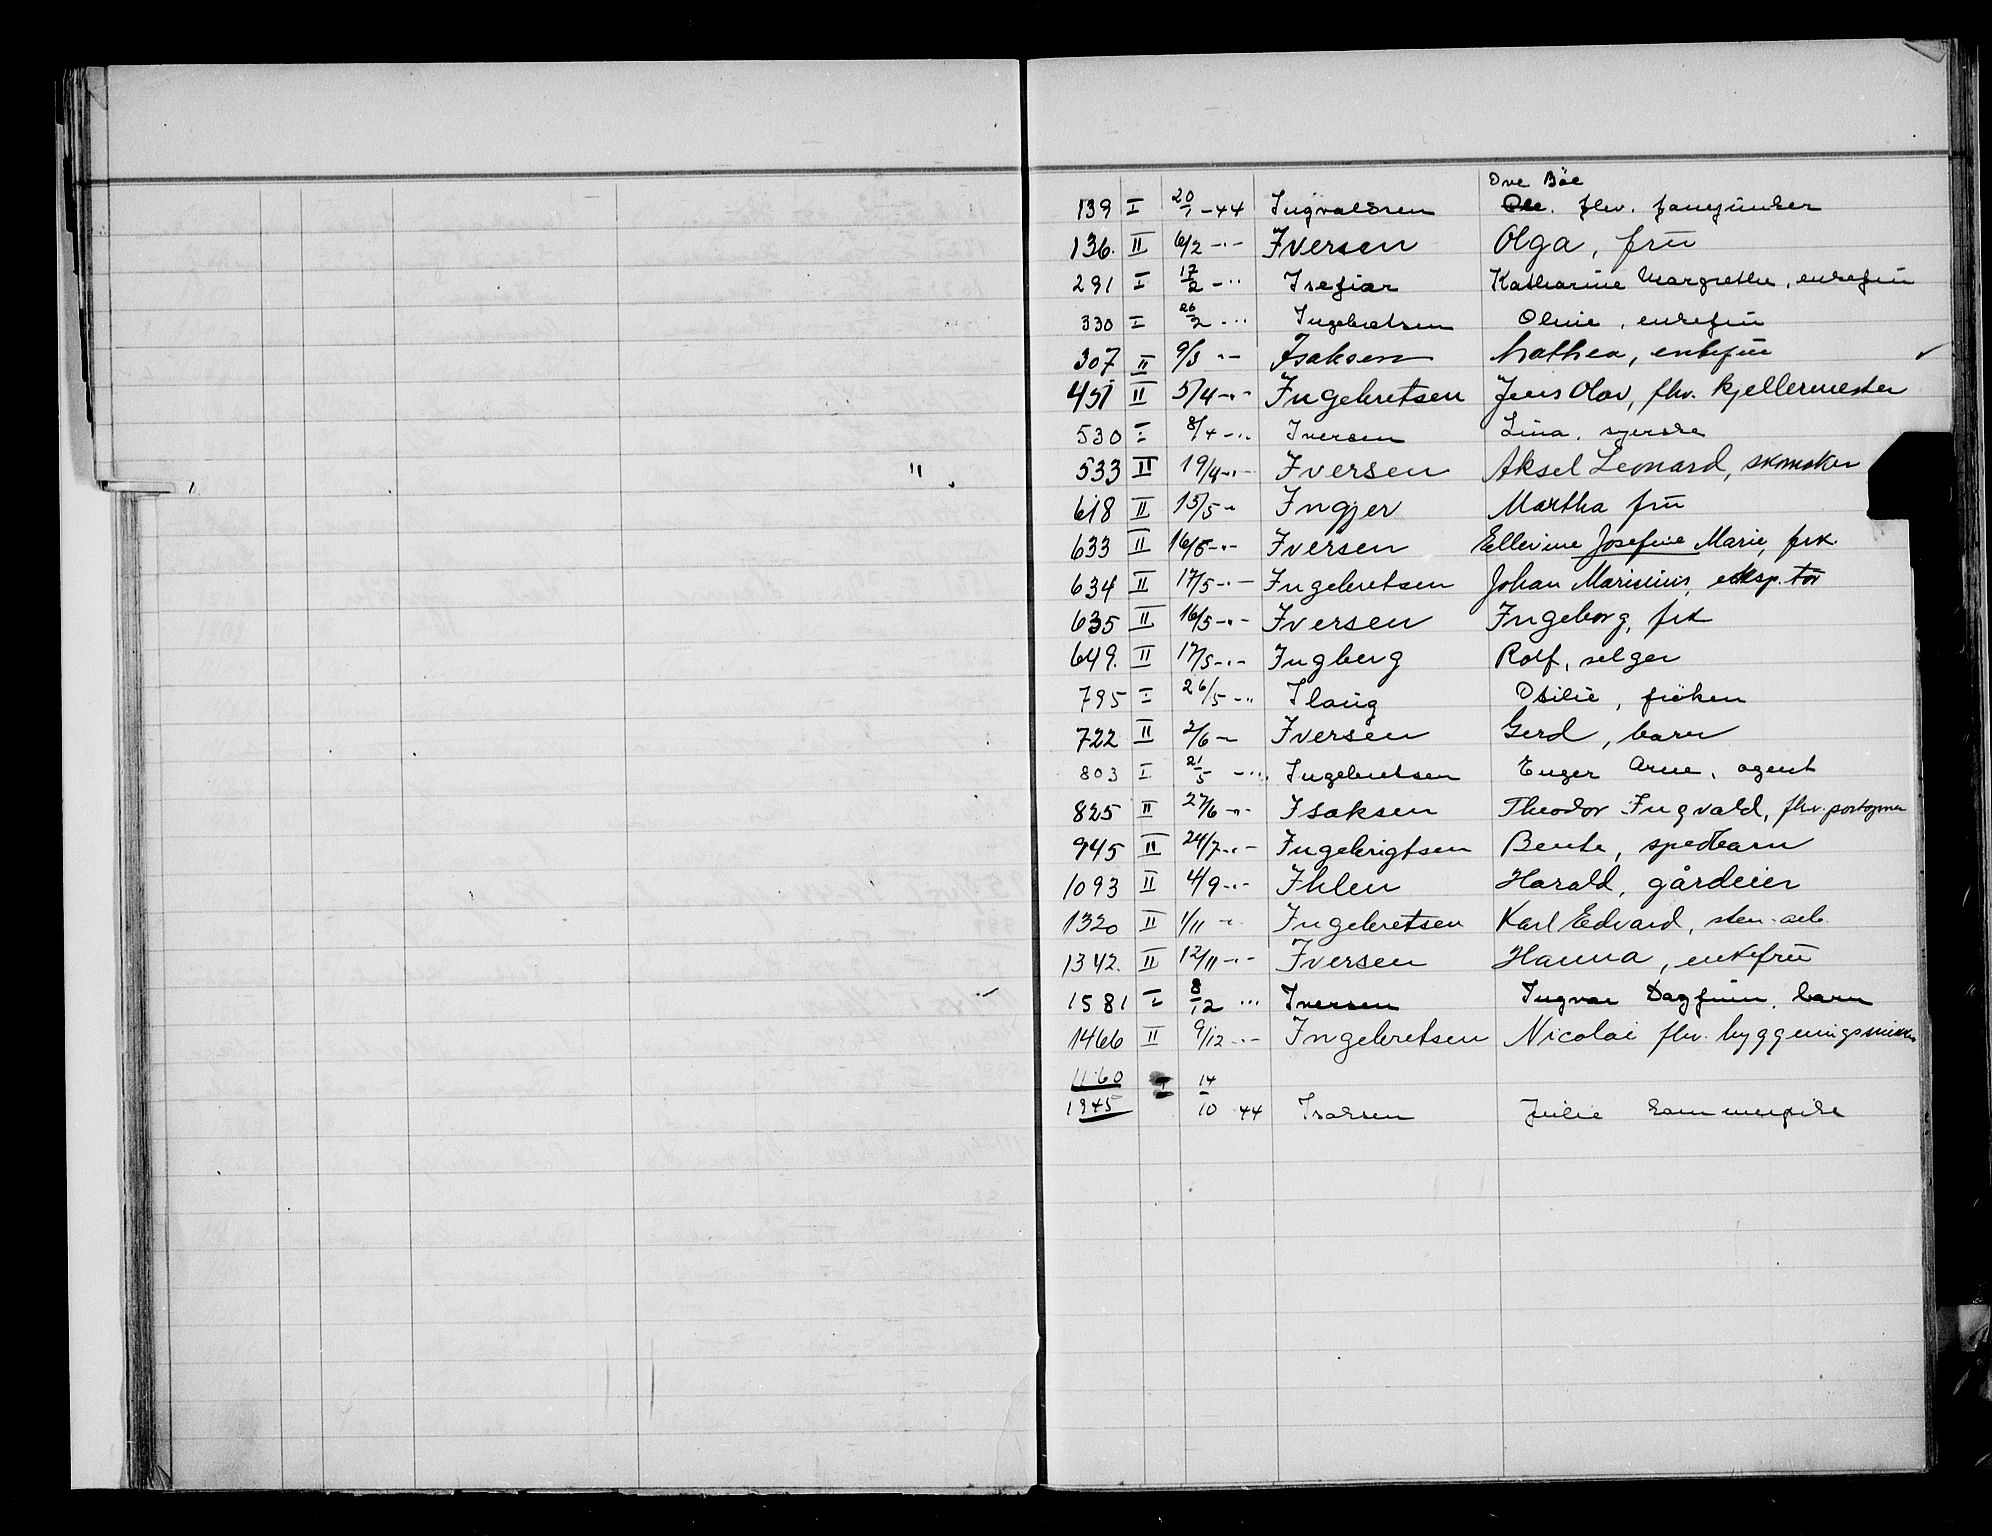 Ove Böe
139 I 20/1 -44 Ingvaldsen Ole. fhv. fanejunker
136. II 6/2 -"- Iversen Olga, frü
291 I 17/2 -"- Isefiær Katharine Margrethe, enkefrü
330 I 26/2 -"- Ingebretsen Oline, enkefrü
307 II 9/3 "- Isaksen Mathea, enkefrü
451 II 5/4 -"- Ingebretsen Jens Olav, fhv. kjellermester
530 I 8/4 -"- Iversen Lina, syerske
533 II 19/4 -"- Iversen Aksel Leonard, skomaker
618 II 15/5 -"- Ingjer Martha frü
633 II 16/5 -"- Iversen Ellevine Josefine Marie, frk.
634 II 17/5 -"- Ingebretsen Johan Marinius, eksp.tør
635 II 16/5 -"- Iversen Ingeborg, frk
649. II 17/5 -"- Ingberg Rolf, selger
795 I 26/5 -"- Ilaug Otilie, fröken
722 II 2/6 -"- Iversen Gerd, barn
803 I 21/5 -"- Ingebretsen Enger Arne, agent
825 II 27/6 -"- Isaksen Theodor Ingvald, fhv.
945 II 24/7 -"- Ingebrigtsen Bente, spedbarn
1093 II 4/9 -"- Ihlen Harald, gårdeier
1320 II 1/11 -"- Ingebretsen Karl Edvard, sten-arb.
1342. II 12/11 -"- Iversen Hanna, enkefrü
1581 I 8/12 -"- Iversen Ingvar Dagfinn, barn
1466 II 9/12 -"- Ingebretsen Nicolai fhv. byggningssnikker
1160 I 14
1945 10 44 Isaksen Julie kammerpike